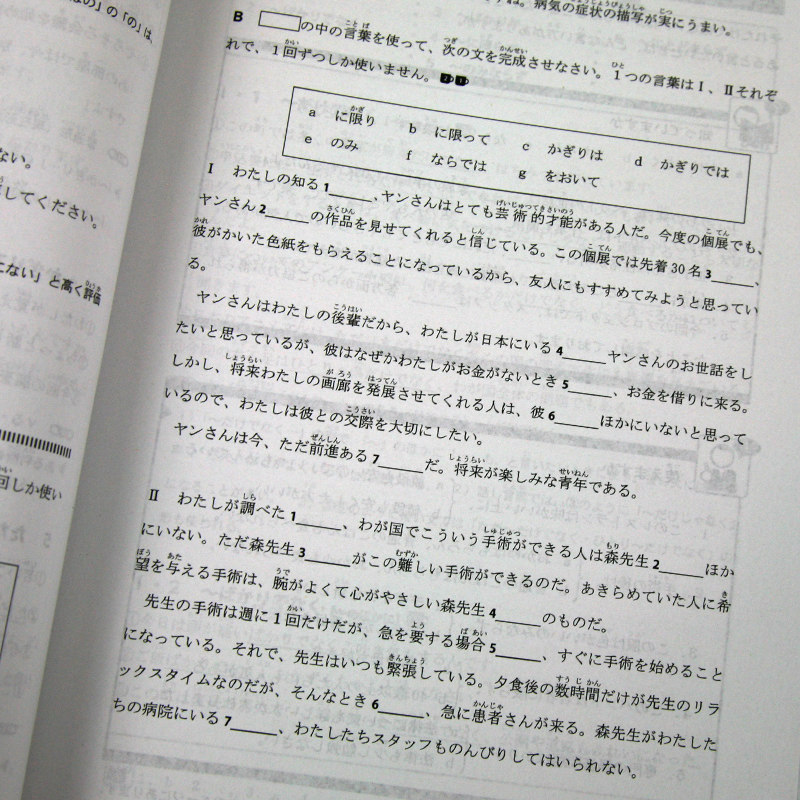 ほの」の「の」は、
ない。
してください。
こない」と高く評価
回しか使い
病気の症状の描写が実にうまい。
B の中の言葉を使って、次の文を完成させなさい。1つの言葉はⅠ、Ⅱそれぞ
れで、1回ずつしか使いません。
a に限り b に限って c かぎりは d かぎりでは
e のみ f ならでは g をおいて
Ⅰ わたしの知る1______、ヤンさんはとても芸術的才能がある人だ。今度の個展でも、
ヤンさん2______の作品を見せてくれると信じている。この個展では先着30名3______、
彼がかいた色紙をもらえることになっているから、友人にもすすめてみようと思ってい
る。
ヤンさんはわたしの後輩だから、わたしが日本にいる4______ヤンさんのお世話をし
たいと思っているが、彼はなぜかわたしがお金がないとき5______、お金を借りに来る。
しかし、将来わたしの画廊を発展させてくれる人は、彼6______ほかにいないと思って
いるので、わたしは彼との交際を大切にしたい。
ヤンさんは今、ただ前進ある7______だ。将来が楽しみな青年である。
Ⅱ わたしが調べた1______、わが国でこういう手術ができる人は森先生2______ほか
にいない。ただ森先生3______がこの難しい手術ができるのだ。あきらめていた人に希
望を与える手術は、腕がよくて心がやさしい森先生4______のものだ。
先生の手術は週に1回だけだが、急を要する場合5______、すぐに手術を始めること
になっている。それで、先生はいつも緊張している。夕食後の数時間だけが先生のリラ
ックスタイムなのだが、そんなとき6______、急に患者さんが来る。森先生がわたした
ちの病院にいる7______、わたしたちスタッフものんびりしてはいられない。